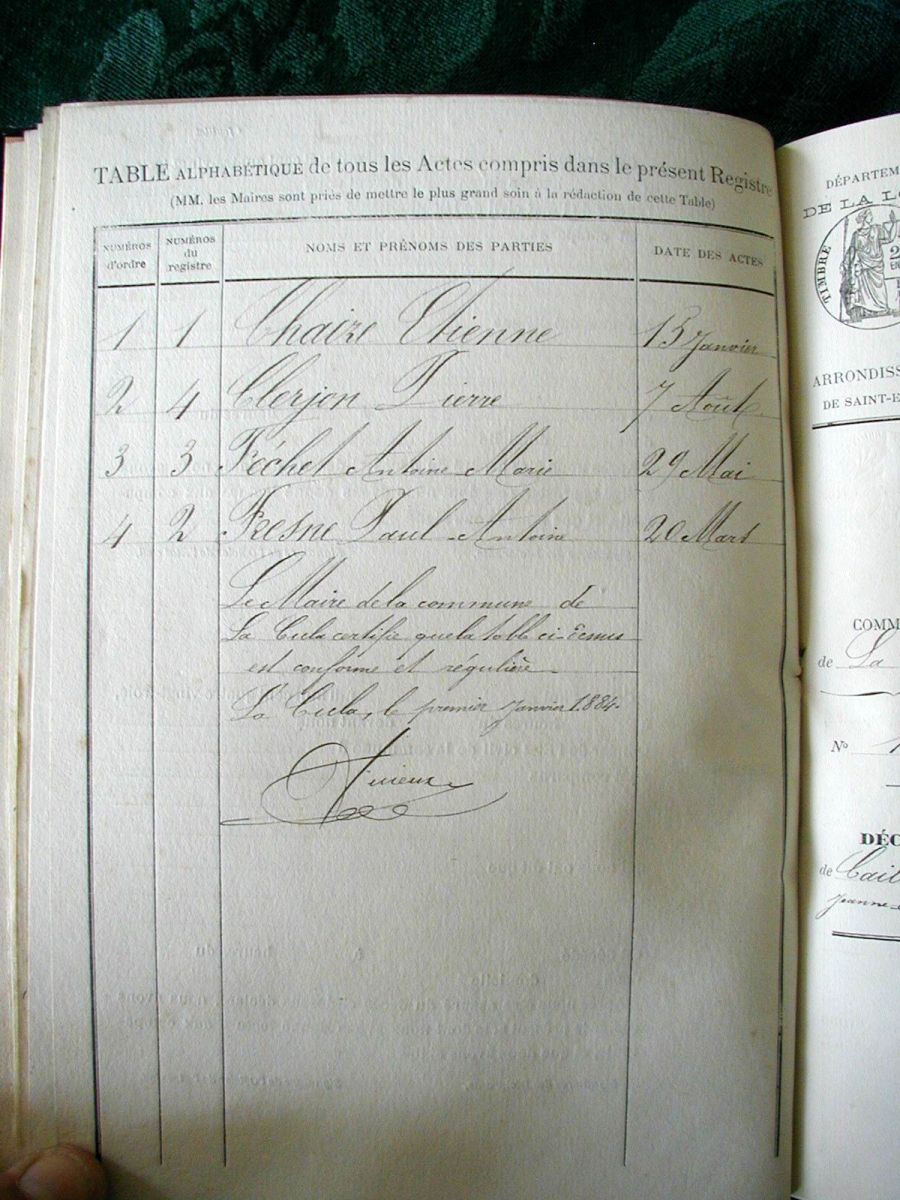 TABLE ALPHABÉTIQUE de tous les Actes compris dans le présent Registre
(MM. les Maires sont priés de mettre le plus grand soin à la rédaction de cette Table)
NUMÉROS d'ordre NUMÉROS du registre NOMS ET PRÉNOMS DES PARTIES DATE DES ACTES
1 1 Chaize Etienne 15 Janvier
2 4 Clerjon Pierre 7 Août
3 3 Féchet Antoine Marie 29 Mai
4 2 Fresne Paul Antoine 20 Mars
Le Maire de la commune de
La Cula certifie que la table ci-dessus
est conforme et régulière
La Cula, le premier Janvier 1884.
DÉPARTEM
DE LA LO
TIMBRE
ARRONDISS
DE SAINT-E
COMM
de La
No 1
DÉC
de Cail
Jeanne